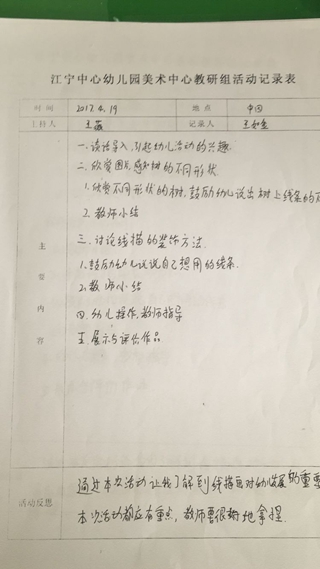 江宁中心幼儿园美术中心教研组活动记录表
时间 2017.4.19 地点 中四
主持人 王薇 记录人
一.谈话导入,引起幼儿活动的兴趣.
二.欣赏图片,感知树的不同形状
1.欣赏不同形状的树,鼓励幼儿说出树上线条的
2.教师小结
三.讨论线描的装饰方法.
1.鼓励幼儿说说自己想用的线条.
2.教师小结
四.幼儿操作,教师指导
五.展示与评价作品
主要内容
活动反思
通过本次活动让我了解到线描画对幼儿发展的重要
本次活动都应有重点,教师要很好地拿捏.